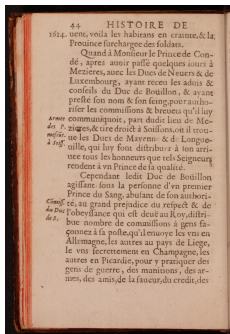 44 HISTOIRE DE
1614. uent, voila les habitans en crainte, & la
Prouince surchargee des soldats.
Quand à Monsieur le Prince de Con-
dé, apres auoir passé quelques iours à
Mezieres, auec les Ducs de Neuers & de
Luxembourg, ayant receu les aduis &
conseils du Duc de Boüillon, & ayant
presté son nom & son seing, pour autho-
riser les commissions & breuets qu'il luy
communiquoit, part dudit lieu de Me-
Armee
des P.
zieres, & tire droict à Soissons, où il trou-
à Soiss.
ue les Ducs de Mayenne & de Longue-
uille, qui luy font distribuer à son arri-
uee tous les honneurs que tels Seigneurs
rendent à vn Prince de sa qualité.
Cependant ledit Duc de Boüillon
agissant sous la personne d'vn premier
Prince du Sang, abusant de son authori-
té, au grand prejudice du respect & de
du Duc
l'obeyssance qui est deuë au Roy, distri-
de B.
bue nombre de commissions à gens fa-
çonnez à sa poste, qu'il enuoye les vns en
Allemagne, les autres au pays de Liege,
le vns secrettement en Champagne, les
autres en Picardie, pour y pratiquer des
gens de guerre, des munitions, des ar-
mes, des amis, de la faueur, du credit, des